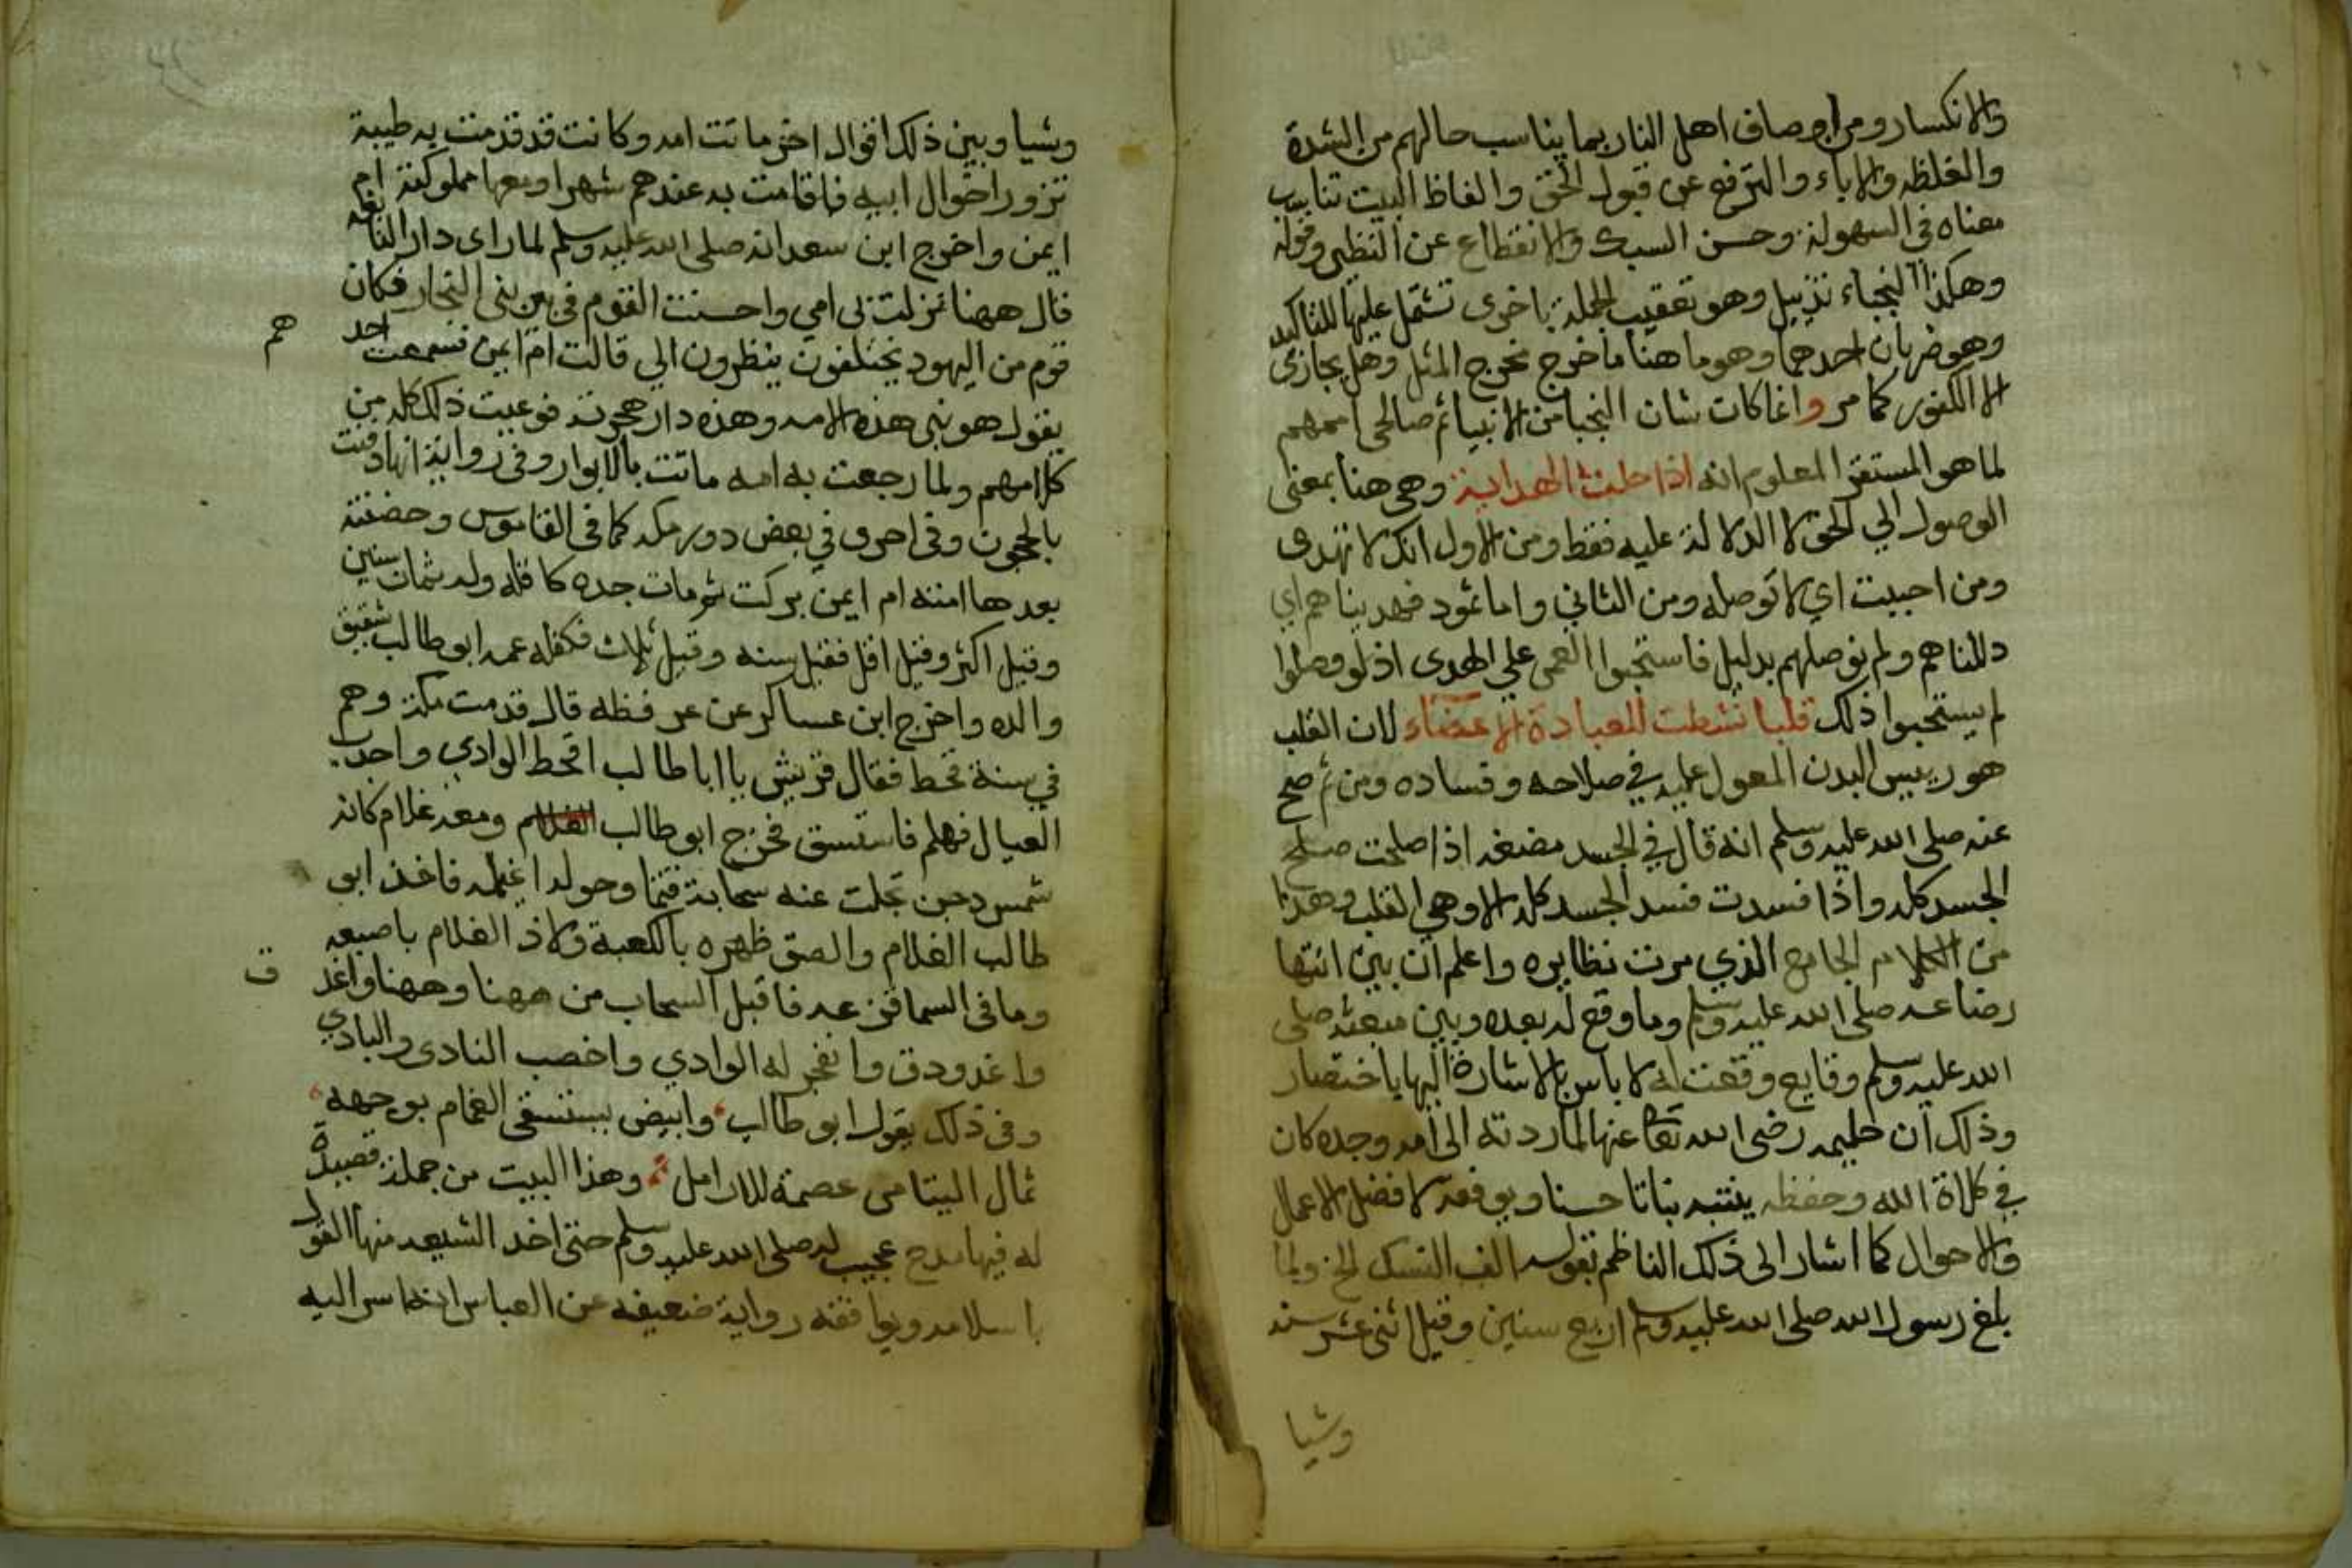 والانكسار ومن اوصاف اهل النار بما يناسب حالهم من الشدة
والغلظه والاباء والترفع عن قبول الحق والفاظ البيت تناسب
معناه في السهولة وحسن السبك والانقطاع عن النظير وقوله
وهكذا النجباء تذييل وهو تعقيب الجملة باخرى تشتمل عليها للتاكيد
وهو ضربان احدهما وهو ما هنا ما خرج مخرج المثل وهل يجازى
الا الكفور كما مر وانما كان شان النجبا من الانبيا ثم صالحى اممهم
لما هو المستقر المعلوم انه اذا حلت الهداية وهى هنا بمعنى
الوصول الي الحق لا الدلالة عليه فقط ومن الاول انك لا تهدى
ومن احببت اي لا توصله ومن الثاني واما ثمود فهديناهم اي
دللناهم ولم نوصلهم بدليل فاستحبوا العمى علي الهدى اذ لو وصلوا
لم يستحبوا ذلك قلبا نشطت للعبادة الاعضاء لان القلب
هو رييس البدن المعول عليه في صلاحه وفساده ومن ثم صح
عنه صلى الله عليه وسلم انه قال في الجسد مضغه اذا صلحت صلح
الجسد كله واذا فسدت فسد الجسد كله الا وهي القلب وهذا
من الكلام الجامع الذي مرت نظايره واعلم ان بين انتها
رضاعه صلى الله عليه وسلم وما وقع له بعده وبين مبعثه صلى
الله عليه وسلم وقايع وقعت له لا باس بالاشارة اليها باختصار
وذلك ان حليمه رضى الله تعا عنها لما ردته الى امه وجده كان
في كلاة الله وحفظه ينبته نباتا حسنا ويوفقه لافضل الاعمال
والاحوال كما اشار الى ذلك الناظم بقوله الف النسك الخ ولما
بلغ رسول الله صلى الله عليه وسلم اربع سنين وقيل اثنى عشر سنه
وشيا
وشيا وبين ذلك اقوال اخر ماتت امه وكانت قد قدمت به طيبة
تزور اخوال ابيه فاقامت به عندهم شهرا ومعها مملوكته ام
ايمن واخرج ابن سعد انه صلى الله عليه وسلم لما راى دار النابغه
قال ههنا نزلت بى امي واحسنت القوم في بير بنى النجار فكان
هم
قوم من اليهود يختلفون ينظرون الي قالت ام ايمن فسمعت احد
يقول هو نبى هذه الامه وهذه دار هجرته فوعيت ذلك كله من
كلامهم ولما رجعت به امه ماتت بالابوا وفى رواية انها دفنت
بالحجون وفى اخرى في بعض دور مكه كما فى القاموس وحضنته
بعدها امنه ام ايمن بركت ثم مات جده كافله وله ثمان سنين
وقيل اكثر وقيل اقل فقيل سنه وقيل ثلاث فكفله عمه ابو طالب شقيق
والده واخرج ابن عساكر عن عرفطه قال قدمت مكة وهم
في سنة قحط فقال قريش يا ابا طالب اقحط الوادي واجدب
العيال فهلم فاستسق فخرج ابو طالب ومعه غلام كانه
شمس دجن تجلت عنه سحابة قتما وحوله اغيلمه فاخذ ابى
طالب الغلام والصق ظهره بالكعبة ولاذ الغلام باصبعه
وما فى السما قزعه فاقبل السحاب من ههنا وههنا واغد
ق
واغدودق وانفجر له الوادي واخصب النادى والبادي
وفى ذلك يقول ابو طالب وابيض يستسقى الغمام بوجهه
ثمال اليتامى عصمة للارامل وهذا البيت من جملة قصيدة
له فيها مدح عجيب له صلى الله عليه وسلم حتى اخذ الشيعه منها القول
باسلامه ويوافقه رواية ضعيفه عن العباس انه اسر اليه